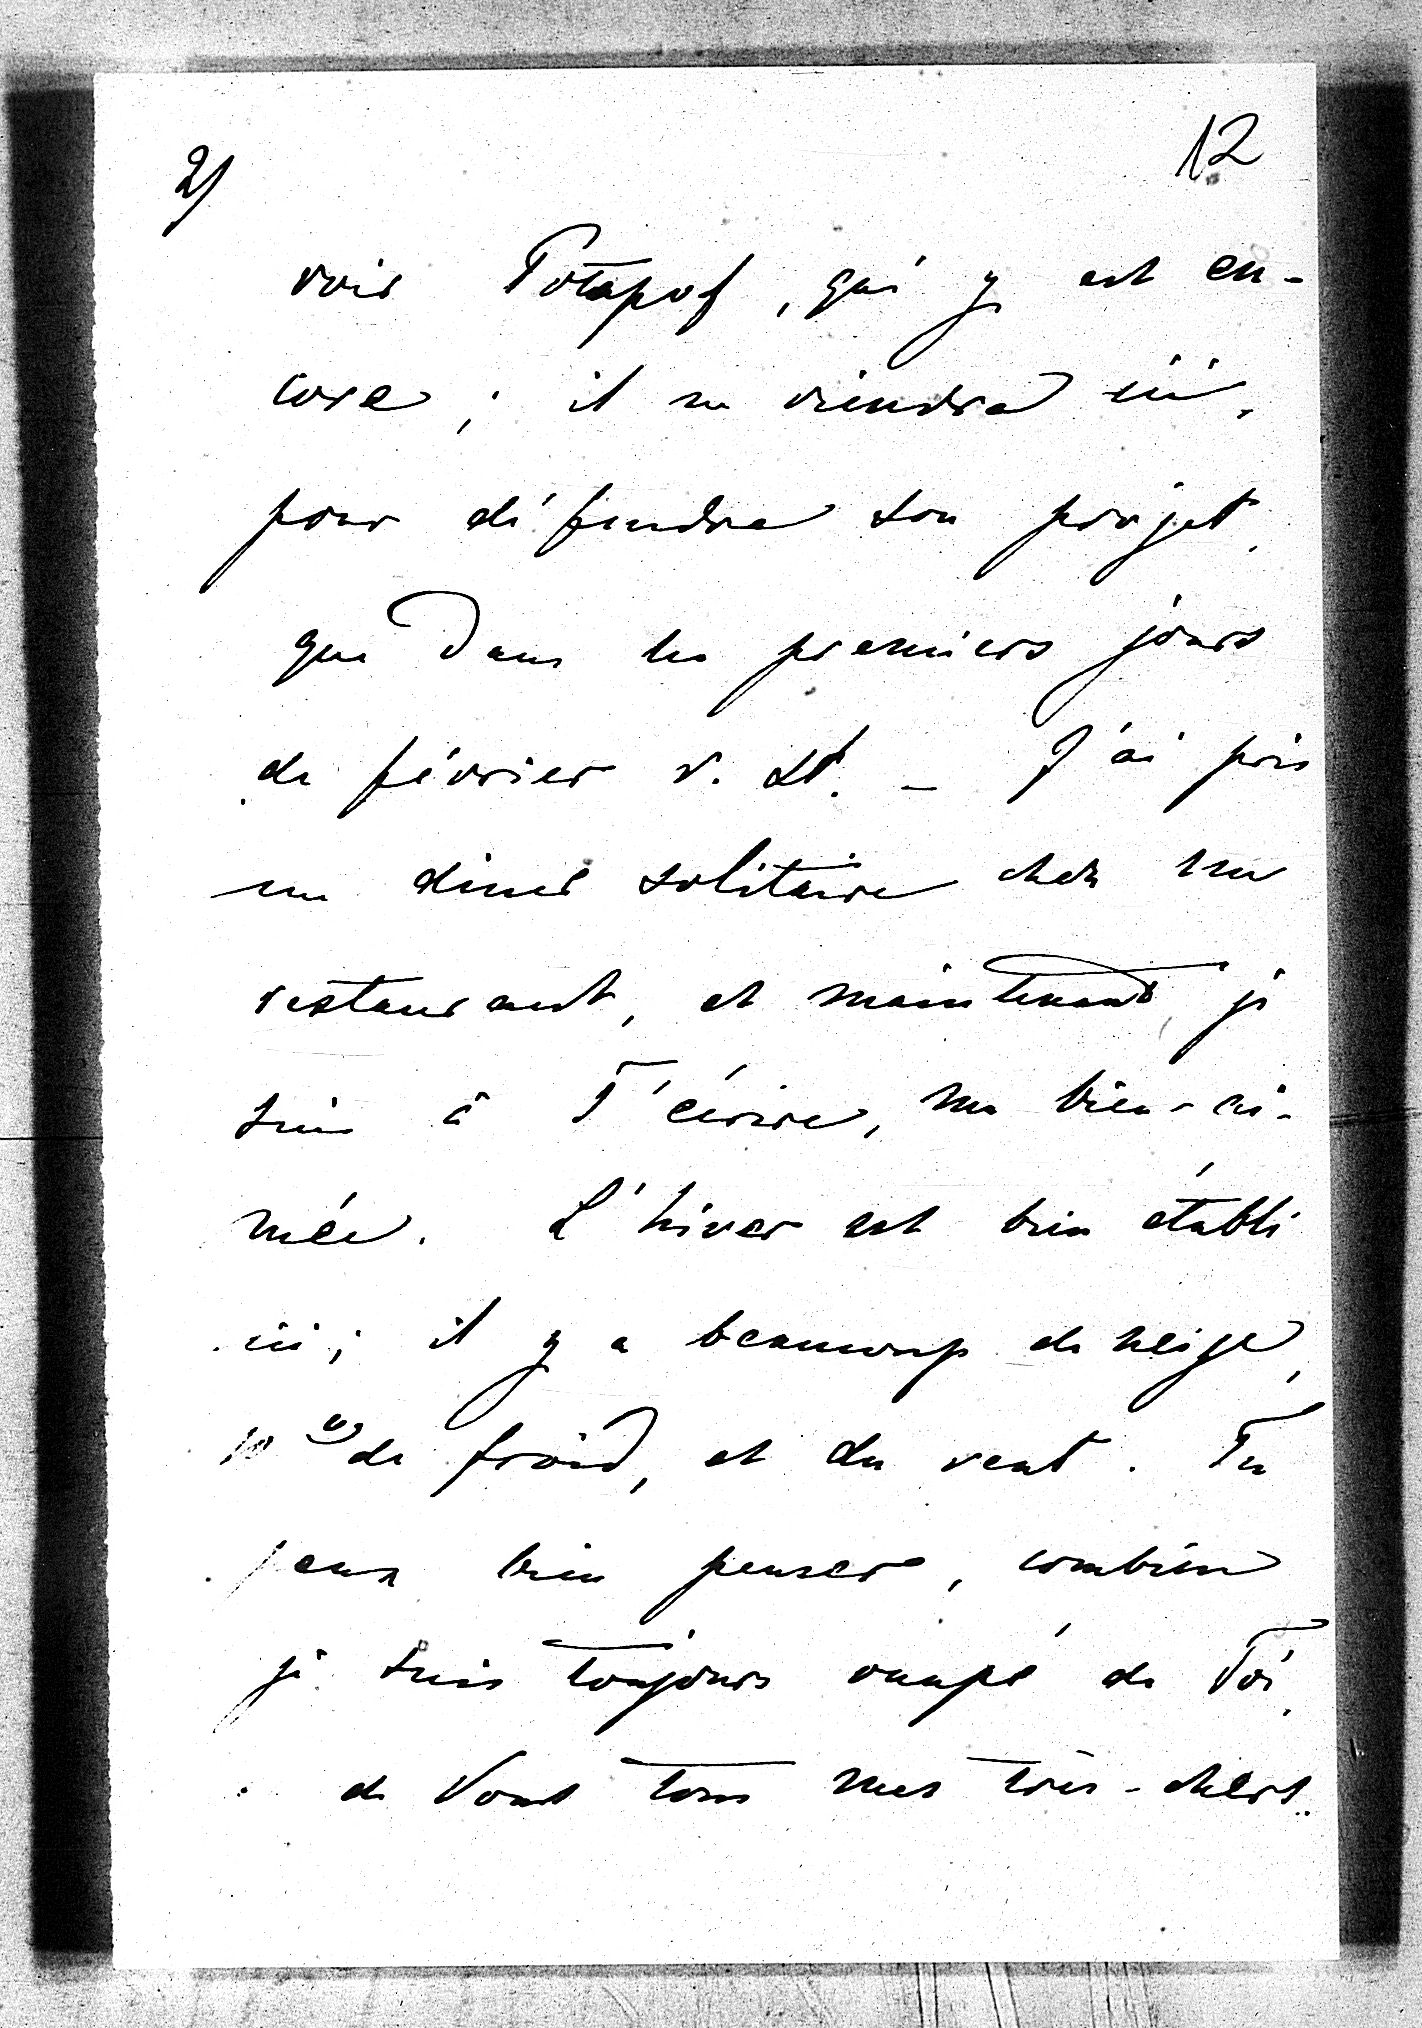 2/
12
voir Potapof, qui y est en-
core ; il ne viendra ici,
pour défendre son projet,
que dans les premiers jours
de février v. st. – J'ai pris
un diner solitaire chez un
restaurant, et maintenant, je
suis à T'écrire, ma bien-ai-
mée. L'hiver est bien établi
ici ; il y a beaucoup de neige,
10 de froid, et du vent. Tu
peux bien penser, combien
je suis toujours occupé de Toi,
de Vous tous mes très-chers.